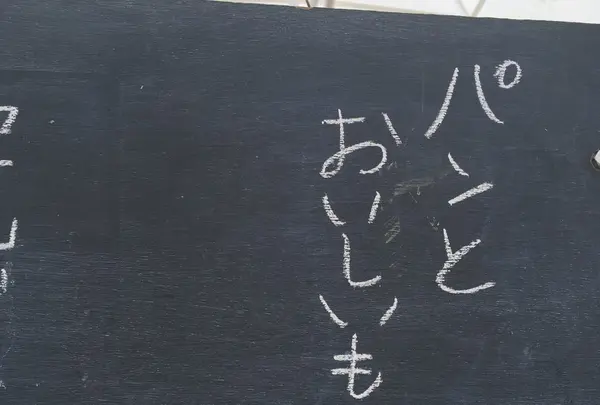 パンと
おいしいも